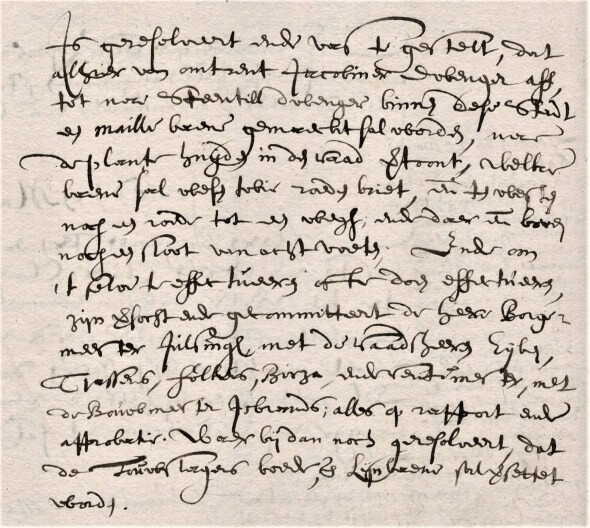 Is geresolveert ende vast gestelt, dat
alhier van omtrent Jacobiner dwenger aff,
tot nae Steentill dwenger binnen dese Stadt
een maille baene gemaeckt sal worden, naer
de plante huyden in den raad verthoont, welke
baene sal wesen tobie roeden briet, ende
noch een roede tot een wegh, ende daer en boven
noch een sloot van acht voeten. Ende om
't selve te effectueren ofte doen effectueren,
zijn versocht ende gecommitteert de heere Borge-
meester Julsingh, met de raadsheeren Eyben,
Trassens, ende rentmeester, met
de Bouwmeester Isebrands, alles op rapport ende
approbatie. Waer bij dan noch geresolveert, dat
de Touwslagers Lijnbaene sal versettet
worden.